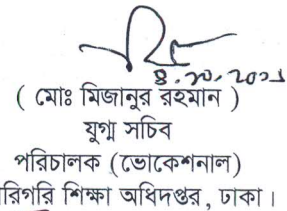 ৪.১০.২০২১
( মোঃ মিজানুর রহমান )
যুগ্ম সচিব
পরিচালক (ভোকেশনাল)
রিগরি শিক্ষা অধিদপ্তর, ঢাকা।